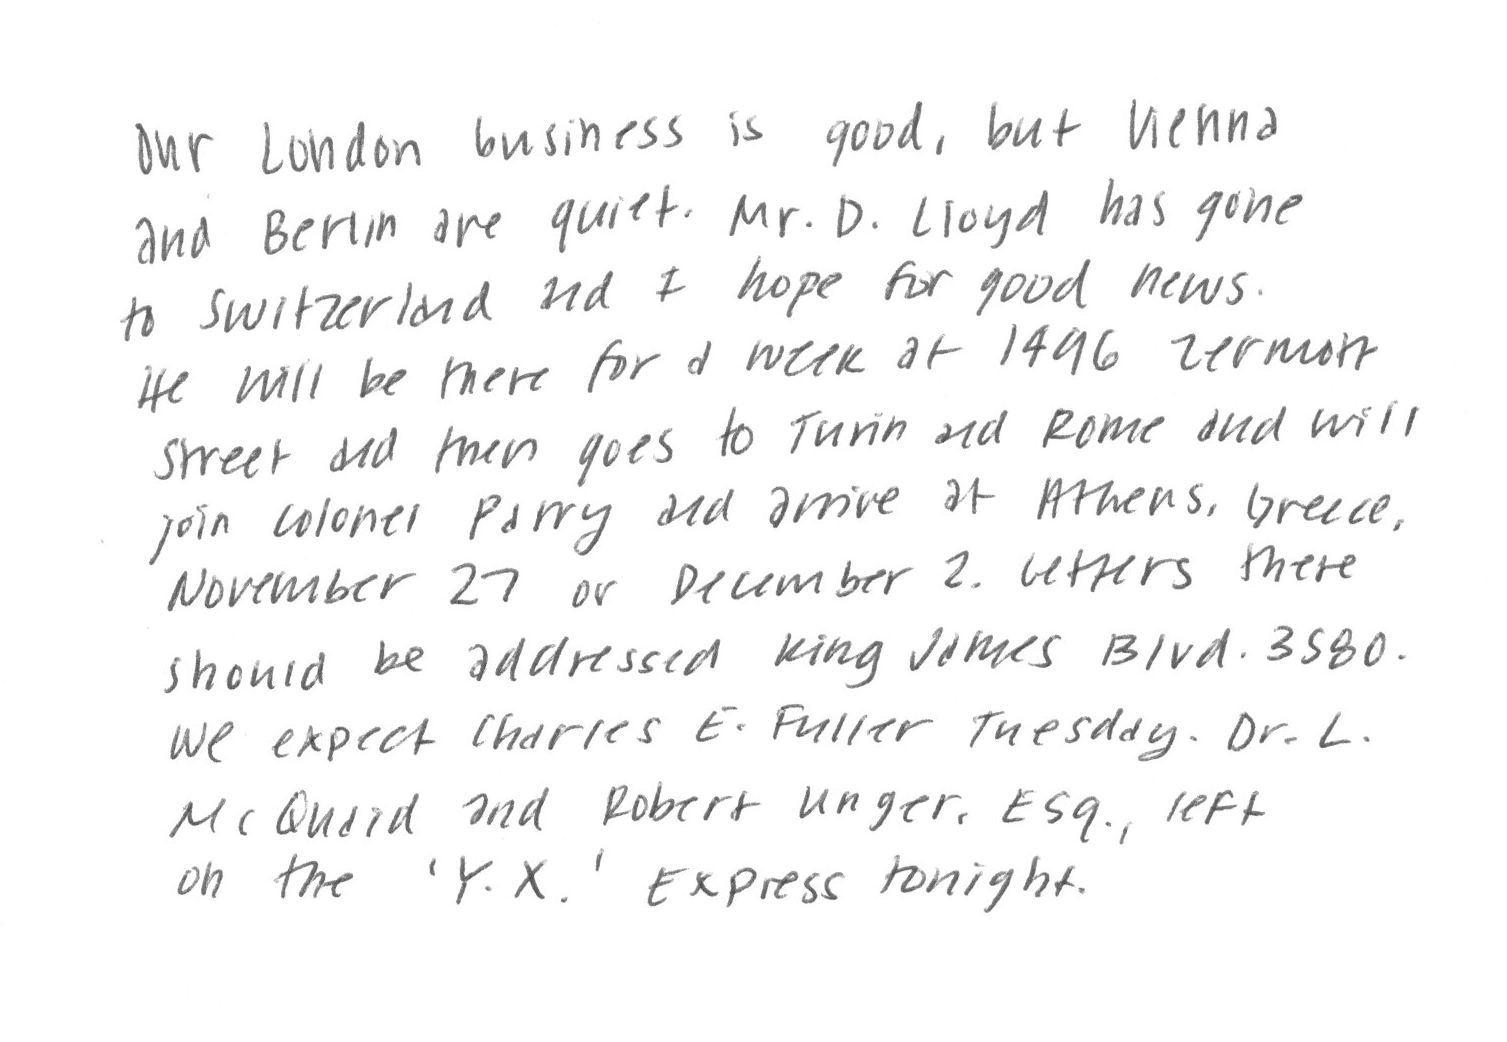 Our London business is good, but Vienna
and Berlin are quiet. Mr. D. Lloyd has gone
to Switzerland and I hope for good news.
He will be there for a week at 1496 Zermott
Street and then goes to Turin and Rome and will
join Colonel Parry and arrive at Athens, Greece,
November 27 or December 2. Letters there
should be addressed King James Blvd. 3580.
We expect Charles E. Fuller Tuesday. Dr. L.
McQuaid and Robert Unger, Esq., left
on the 'Y.X.' Express tonight.